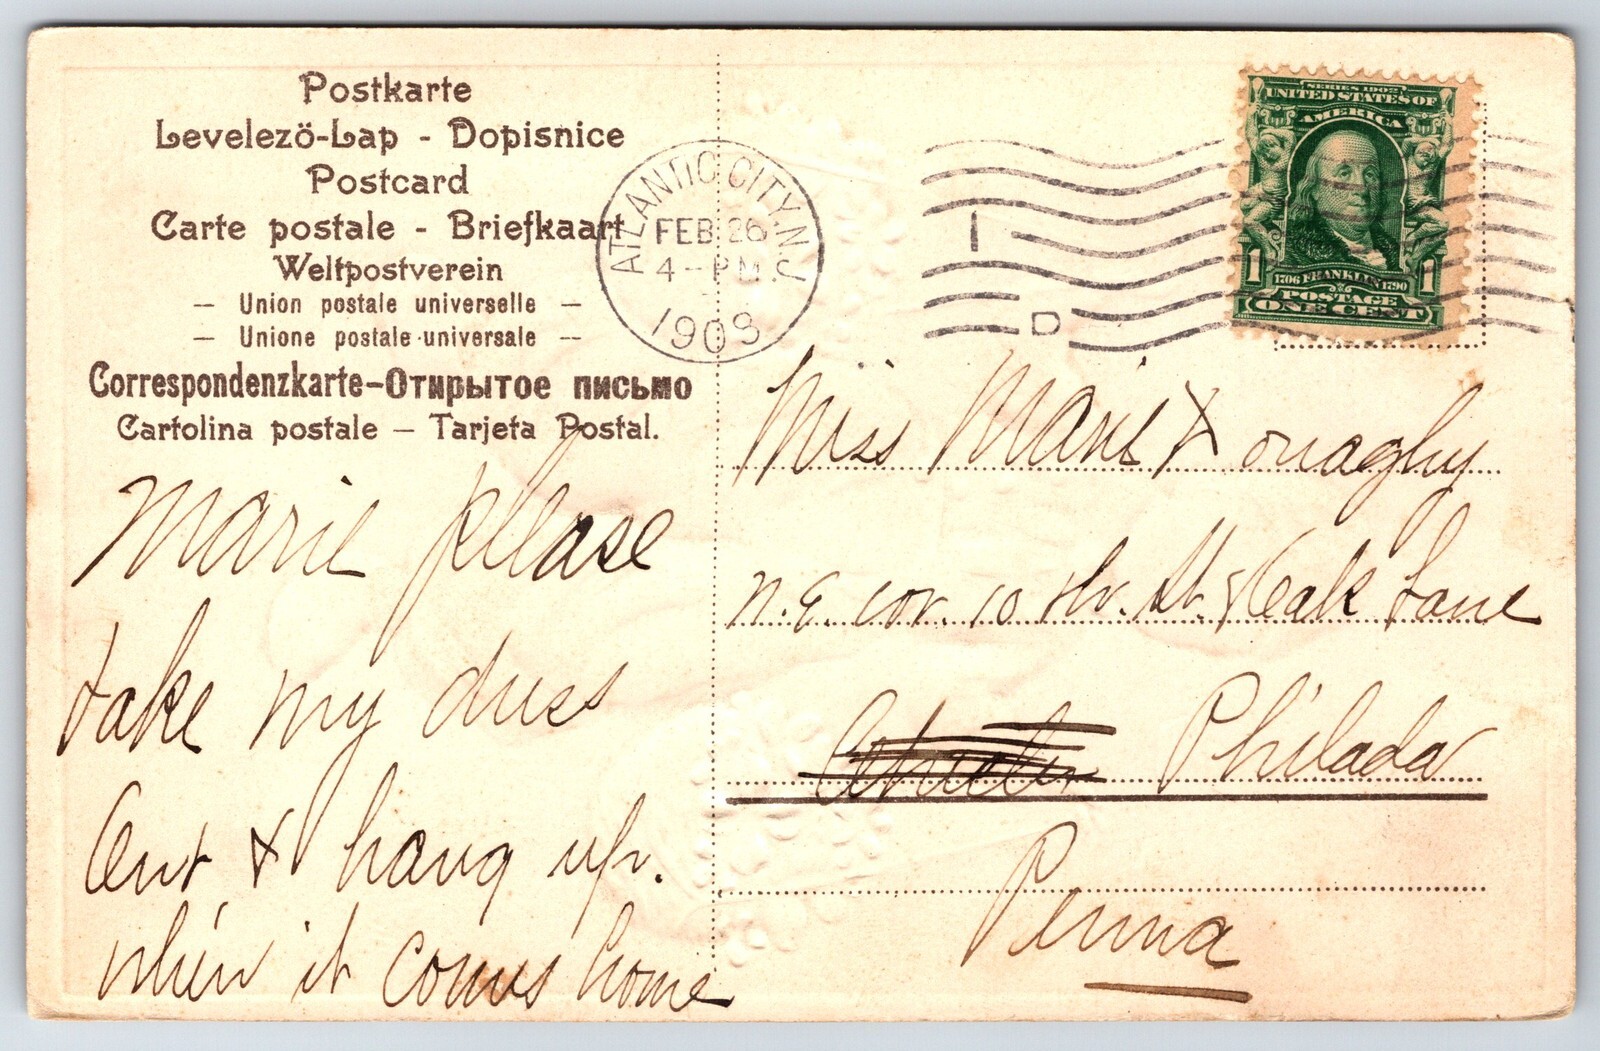 Postkarte
Levelezö-Lap - Dopisnice
Postcard
Carte postale - Briefkaart
Weltpostverein
— Union postale universelle —
— Unione postale universale —
Correspondenzkarte-Открытое письмо
Cartolina postale — Tarjeta Postal.
Marie please
take my dress
out & hang up.
when it comes home
ATLANTIC CITY, N.J.
FEB 26
4 - PM
1908
1
D
SERIES 1902
UNITED STATES OF
AMERICA
1 1
1706 FRANKLIN 1790
POSTAGE
ONE CENT
Miss Marie Donaghy
N.E. cor. 10 th. St. & Oak Lane
Philada
Penna